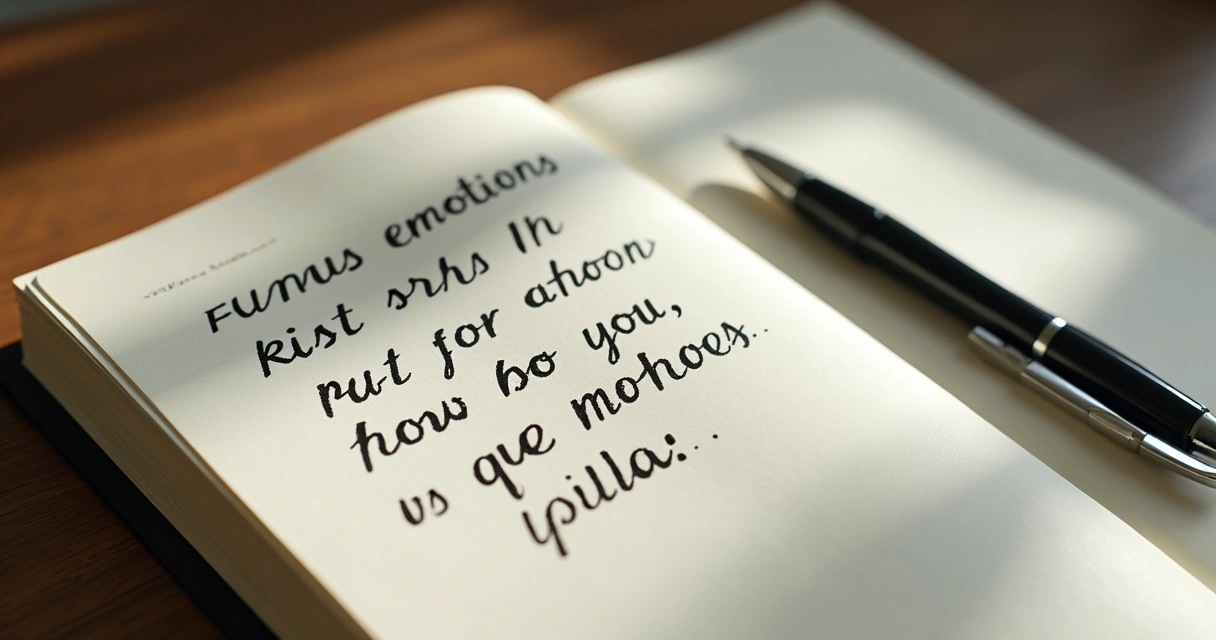 Fumus emotions
kist srhs In
put for ahoon
how bo you,
us que mohoes..
ipilla:..